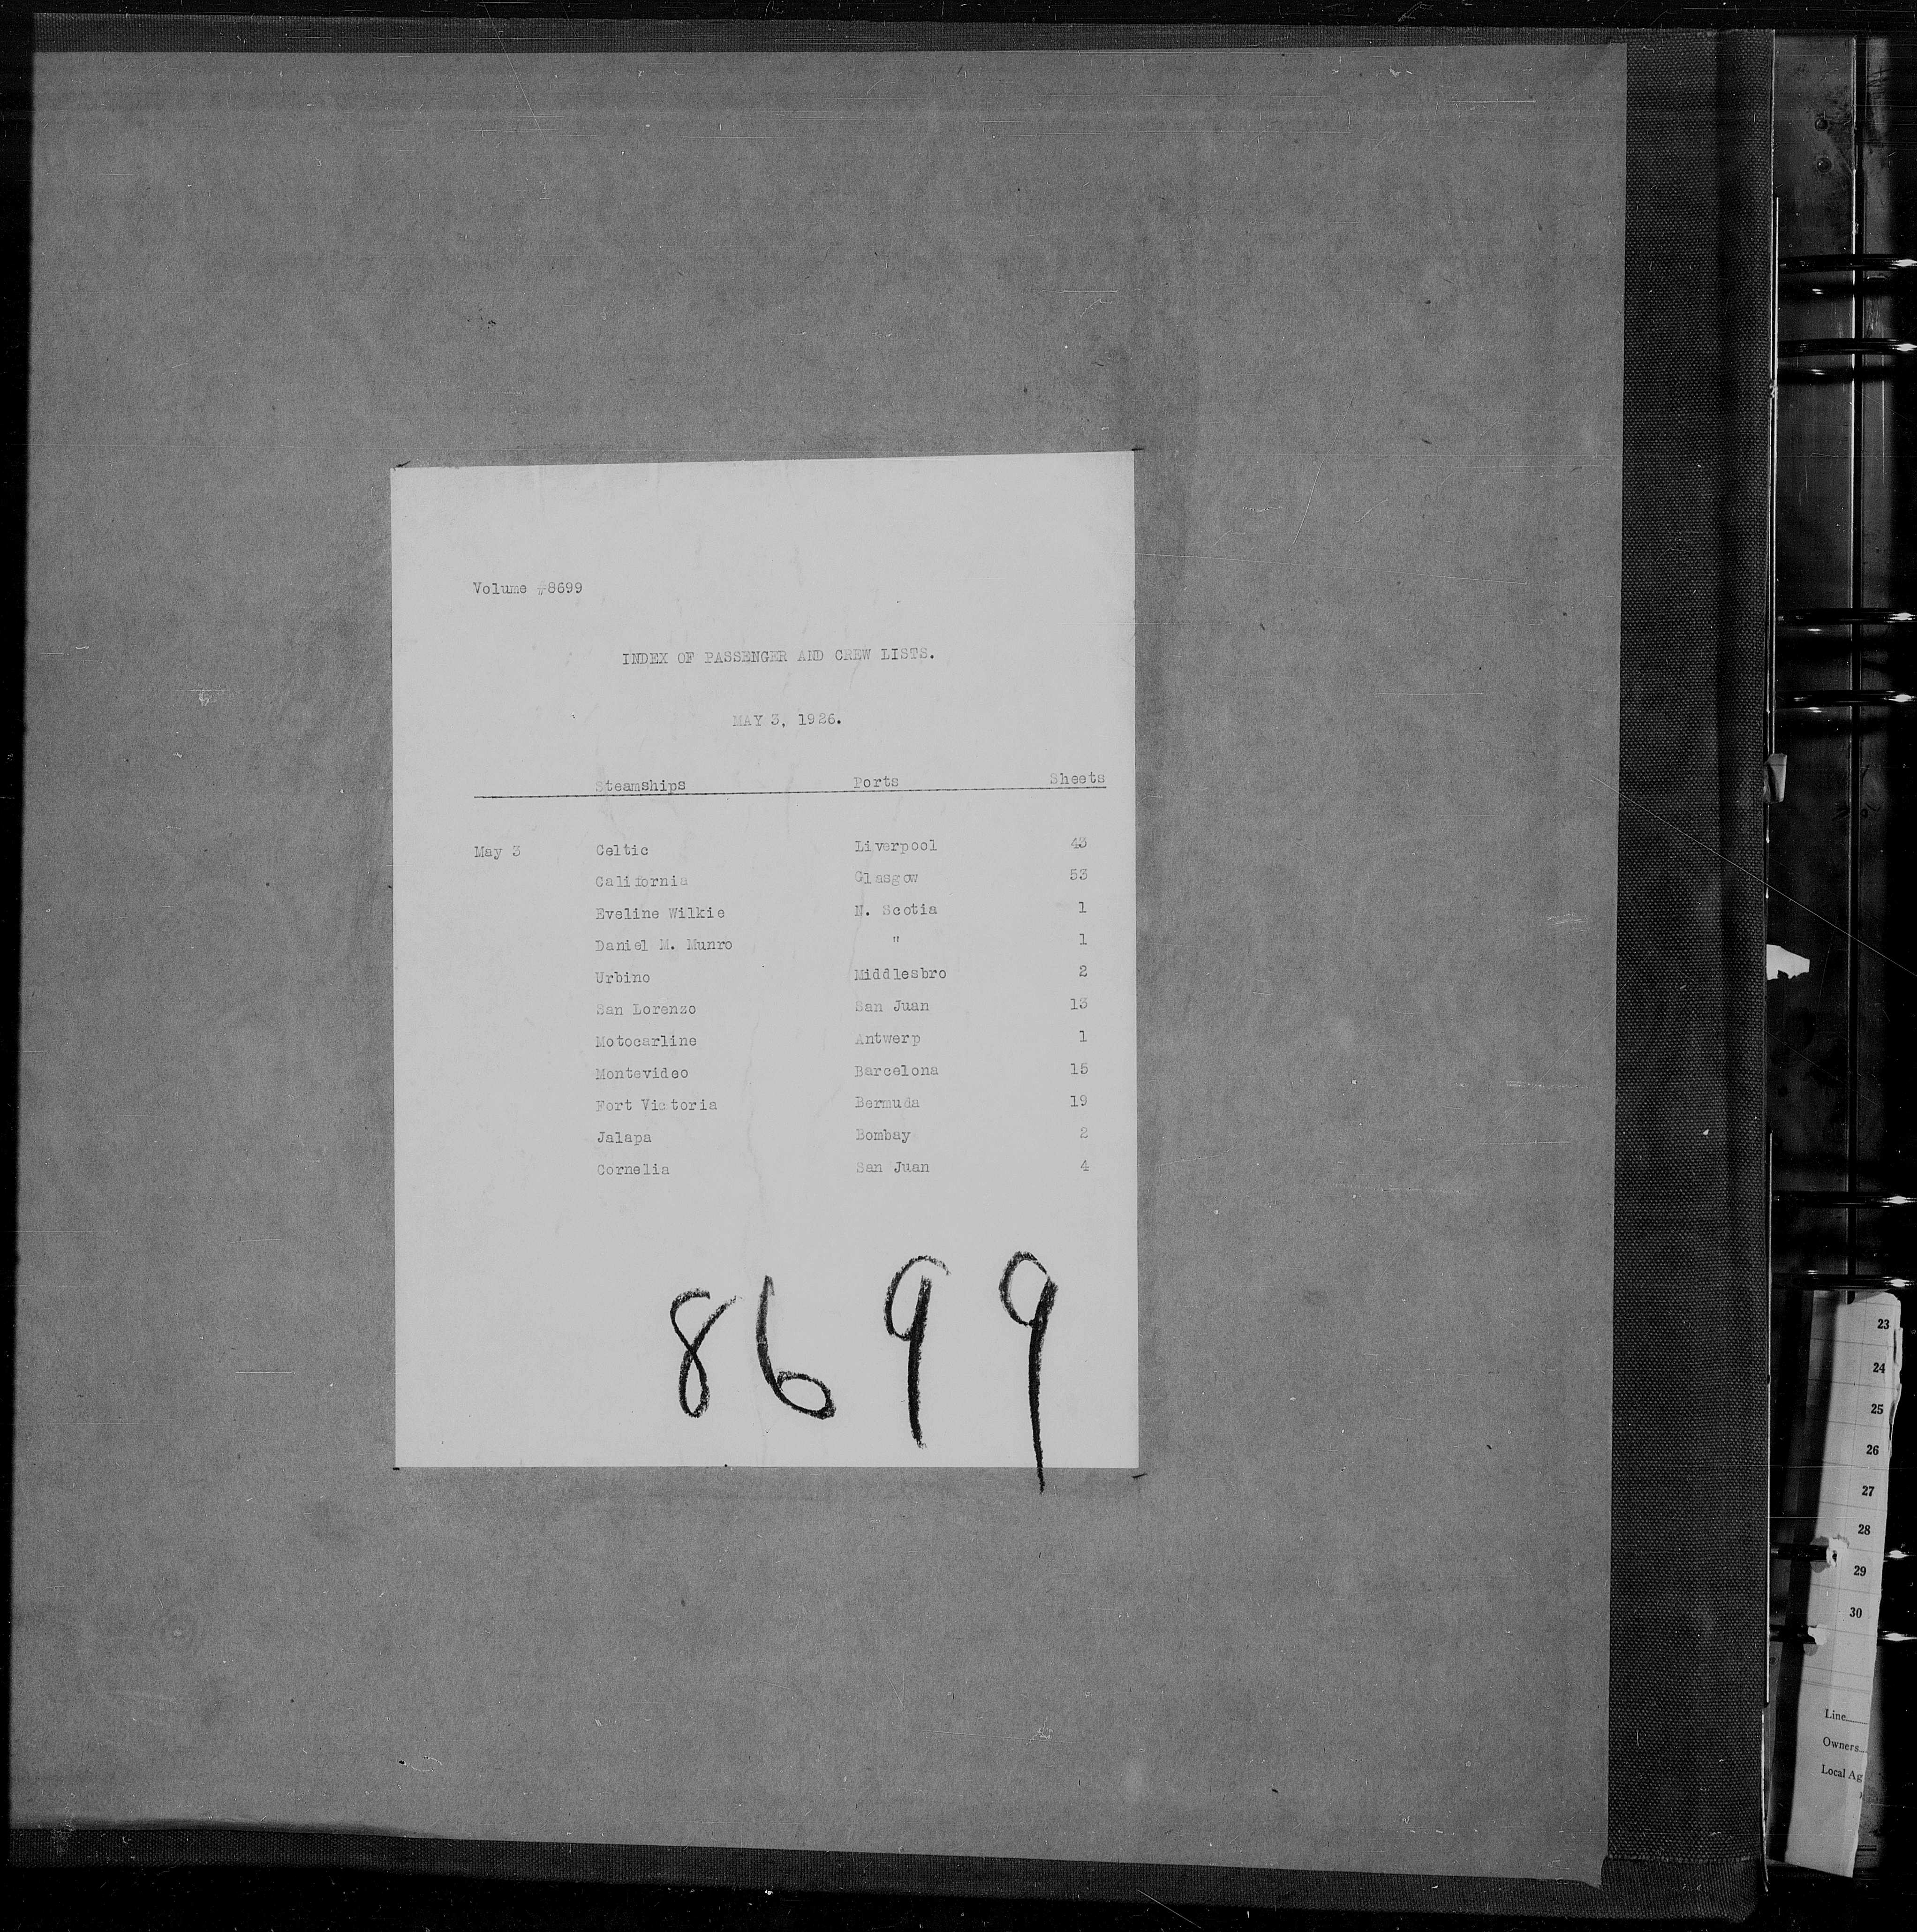 Volume #8699
INDEX OF PASSENGER AND CREW LISTS.
MAY 3, 1926.
Steamships Ports Sheets
May 3 Celtic Liverpool 43
California Glasgow 53
Eveline Wilkie N. Scotia 1
Daniel M. Munro " 1
Urbino Middlesbro 2
San Lorenzo San Juan 13
Motocarline Antwerp 1
Montevideo Barcelona 15
Fort Victoria Bermuda 19
Jalapa Bombay 2
Cornelia San Juan 4
8699
23
24
25
26
27
28
29
30
Line
Owners
Local Ag